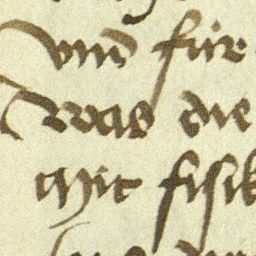 vnd für
was die
mit fisik